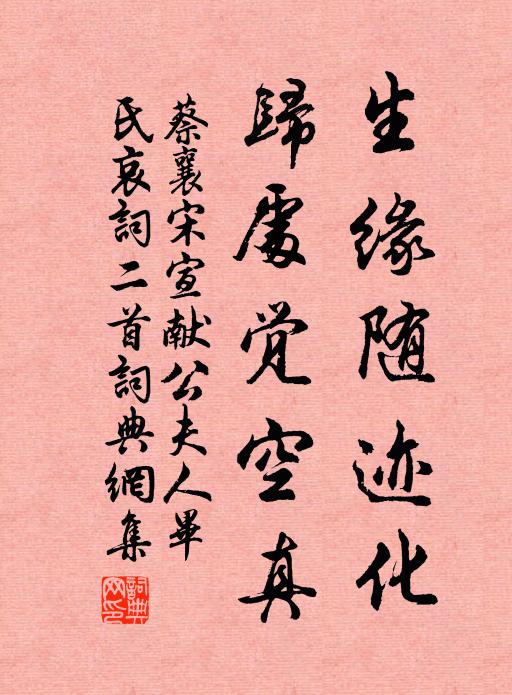 生缘随迹化
歸處觉空真
蔡襄宋宣献公夫人畢
氏哀詞二首詞典網集
詞典網印